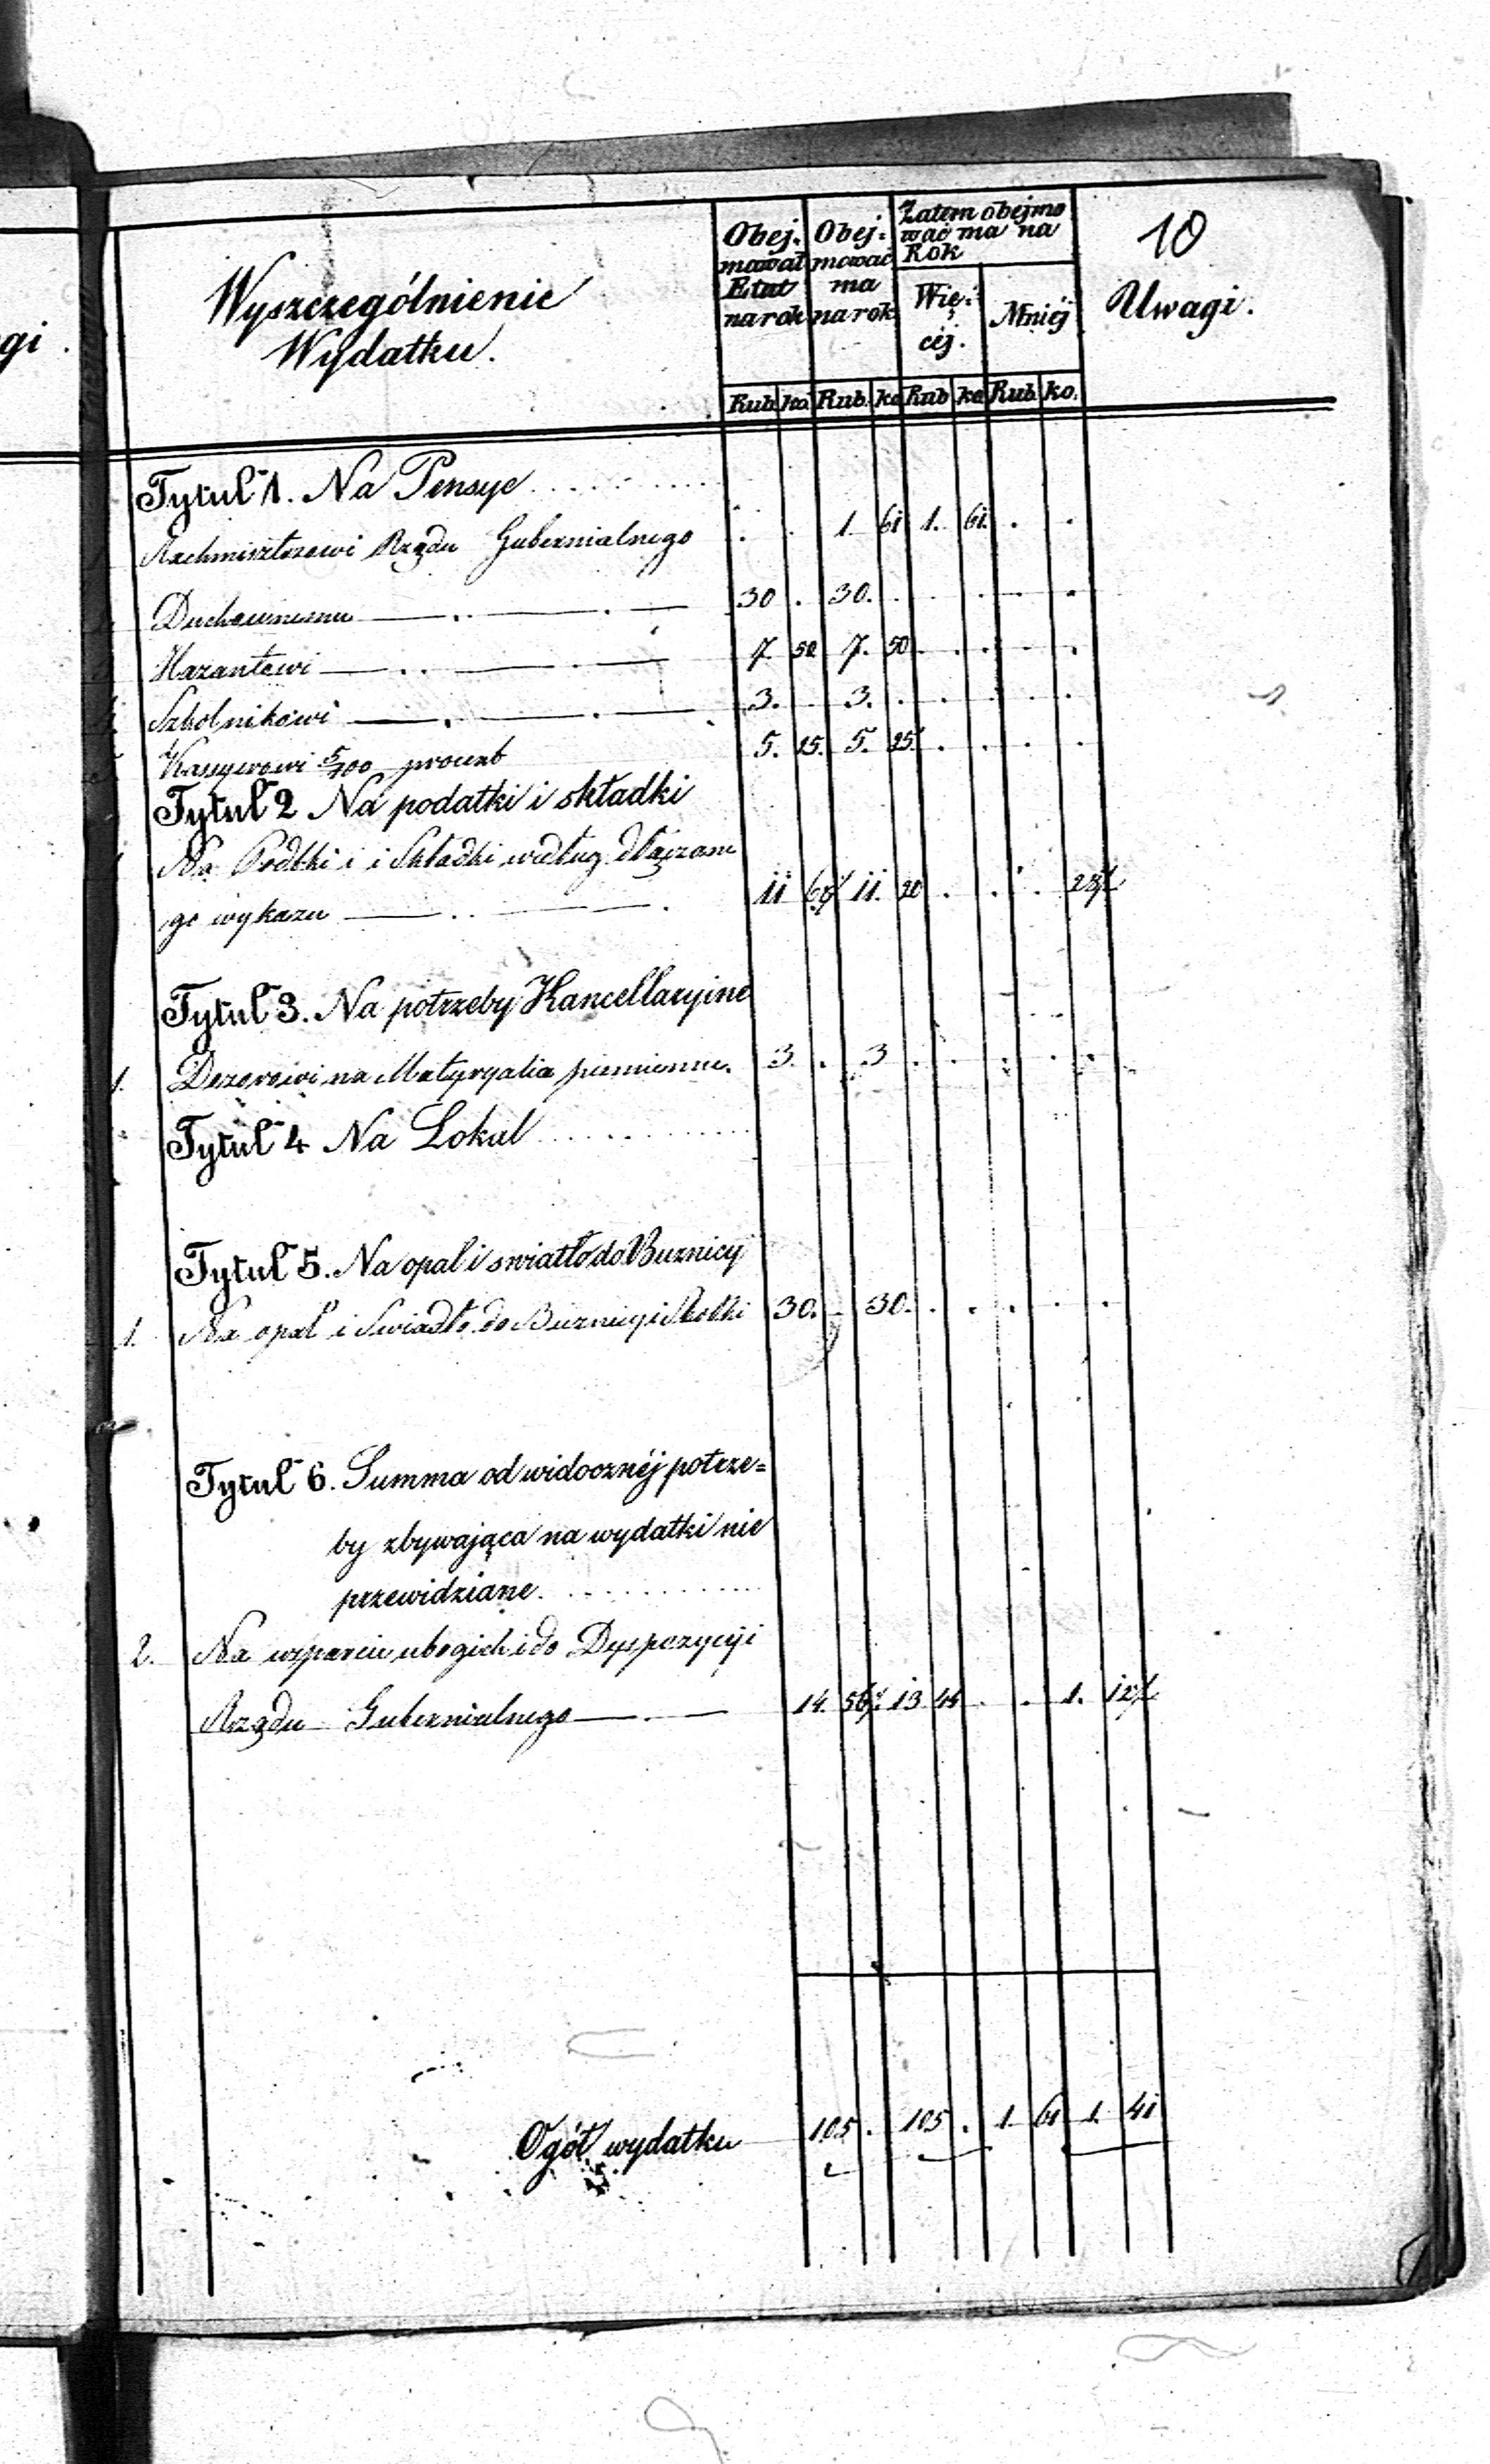 10
gi
Wyszczególnienie
Wydatku.
Obej: mował Etat na rok
Obej: mować ma na rok
Zatem obejmo wać ma na Rok
Wię: céj.
Mniéj
Uwagi.
Rub. ko. Rub. ko Rub ko Rub. ko.
Tytuł 1. Na Pensye
Rachmistrzowi Rządu Gubernialnego . . 1. 61 1. 61. . .
Duchownemu 30 . 30. . . . . .
Kazantowi 7. 50 7. 50 . . . .
Szkolnikowi 3. . 3. . . . . .
Kassyerowi 5/100 procent 5. 25. 5. 25. . . . .
Tytuł 2 Na podatki i składki
Na i Składki według
go wykazu 11 11. 20 . . . .
Tytuł 3. Na potrzeby Kancellaryine
1. Dozorowi na Materyalia piśmienne. 3. . 3 . . . . .
Tytuł 4 Na Lokal
Tytuł 5. Na opał i swiatło do Buznicy
1. Na opał i Swiadło do Buznicy i 30. . 30. . . . . .
Tytuł 6. Summa od widocznéj potrze=
by zbywająca na wydatki nie
przewidziane.
2. Na wsparcie ubogich i do Dyspozycyi
Rządu Gubernialnego 14. 56½ 13 44 . . 1. 12½
Ogół wydatku 105 . 105 . 1. 61 1. 41